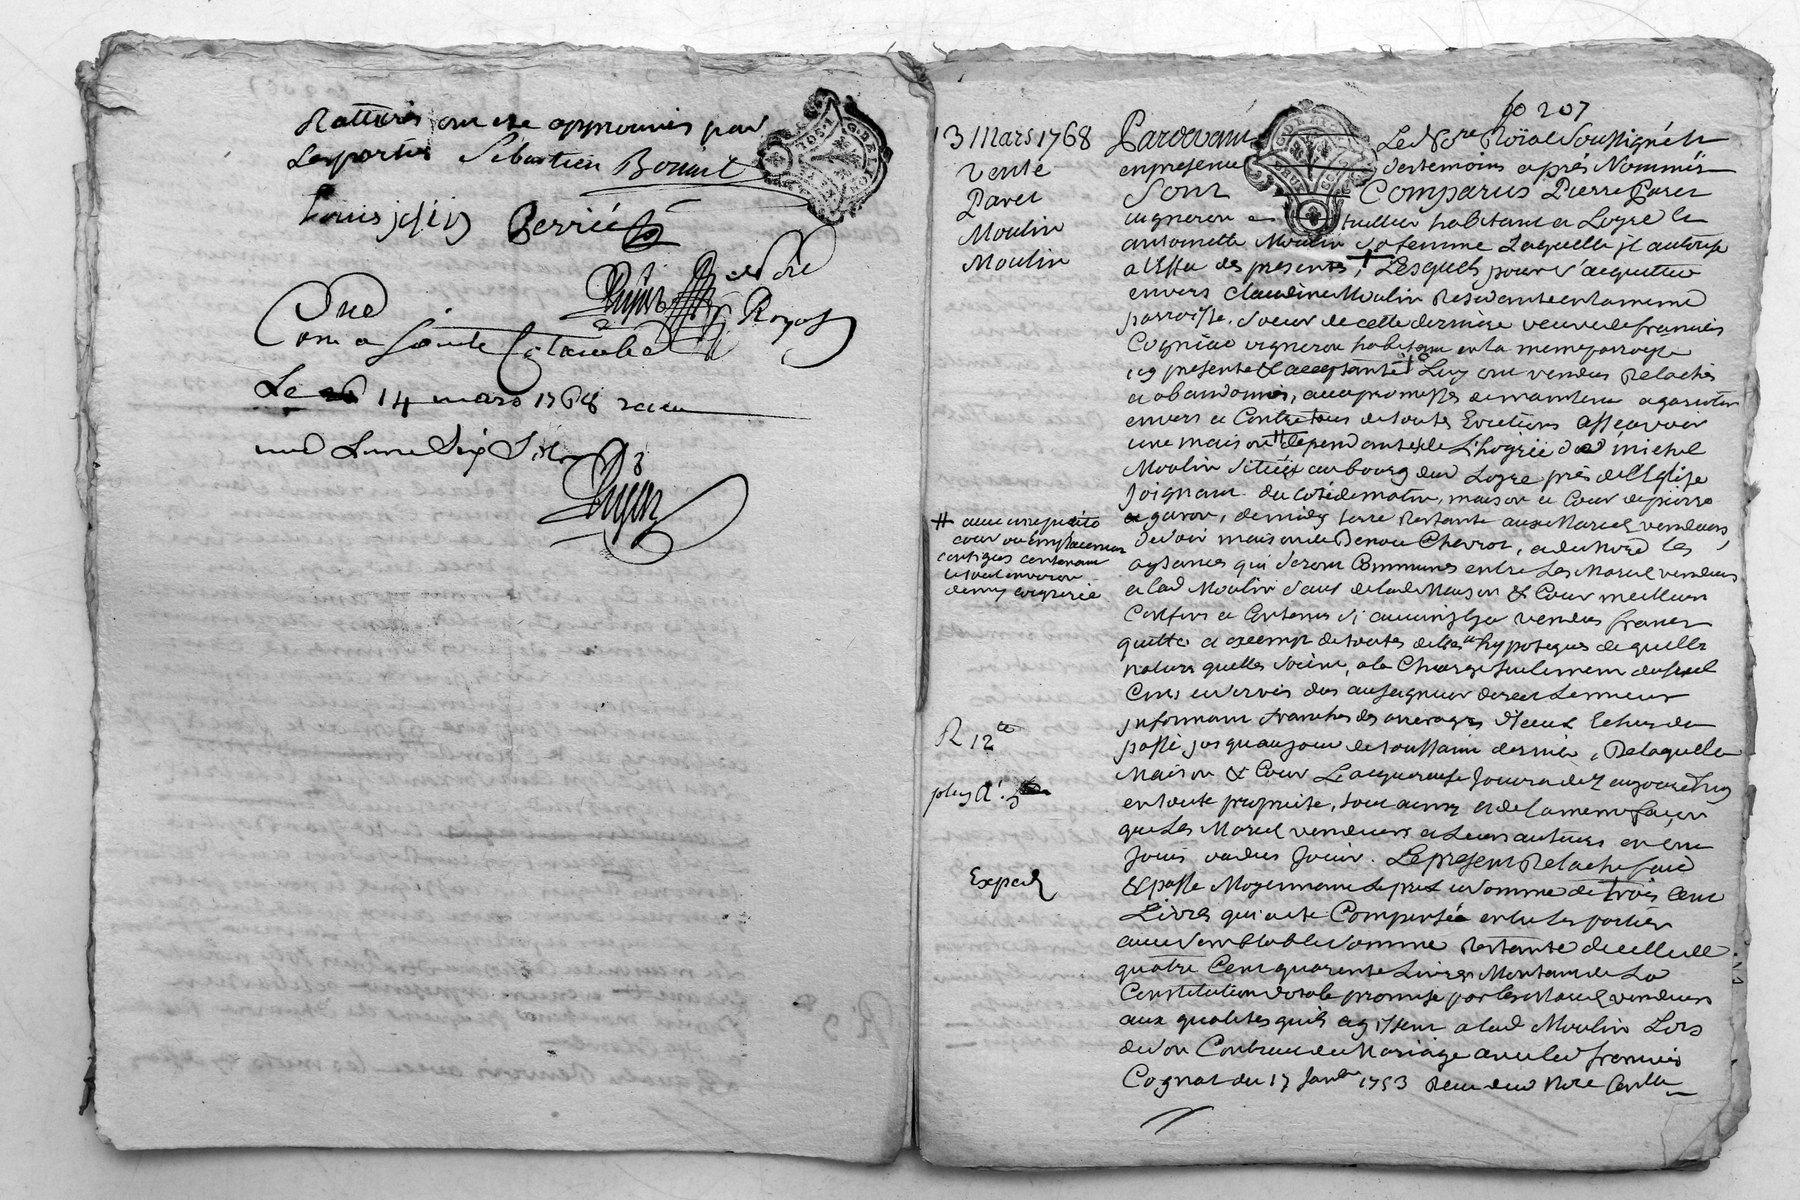 Ratturés ont été approuvés par
les parties Sebastien Bonnet
Louis Perrier
Royal
Con a Sainte Colombe
Le 14 mars 1768 recu
une Livre dix Sols
fo 207
13 Mars 1768
Vente
Paret
Moulin
Moulin
R 12
Exped
# avec une petite
cour ou Emplacement
contigus contenant
le tout environ
demy couperée
Pardevant Le Nore Roïal Soussigné &
en presence des temoins aprés Nommés
Sont Comparus Pierre Paret
vigneron & habitant a Loyre &
antoinette Moulin Sa femme Laquelle jl autorise
a l'effet des presentes, Lesquels pour s'acquitter
envers Claudine Moulin Residante en la meme
parroisse, Soeur de cette derniere veuve de francois
Cogniat vigneron habitant en la meme parroisse
icy presente & acceptante Luy ont vendus Relachés
et abandonnés, avec promesses de maintenir & garantir
envers et Contre tous de toutes Evictions assçavoir
une maison # dependante de L'hoyrie de michel
Moulin Située au bourg dud Loyre prés de l'Eglise
Joignant du coté de matin, maison et Cour de pierre
garon, de midy terre Restante aux Mariés vendeurs,
de soir maison de Benoit Chevrot, et du Nord les
aysances qui Seront Communes entre Les Mariés vendeurs
et lad Moulin Sauf de lad Maison & Cour meilleurs
Confins et Contenus Si aucuns y a vendus francs
quitte et exempt de toutes dettes hypoteques de quelle
nature quelles Soient, a la Charge Seulement du Seul
Cens et Servis dus au Seigneur direct Le mieux
jnformant franches des arrerages d'Iceux Echus du
passé jusquaujour de toussaint dernier, De laquelle
Maison & Cour L'acquereuse Jouira dez aujourd'huy
en toute proprieté, tout ainsy et de la meme façon
que Les Mariés vendeurs et Leurs auteurs en ont
Jouis ou dus Jouir. Le present Relache fait
& passé Moyennant Le prix et Somme de trois Cent
Livres qui a eté Compensée entre les parties
avec Semblable Somme Restante de celle de
quatre Cent quarente Livres Montant de La
Constitution dotale promise par les Mariés vendeurs
aux qualités quils agissent a lad Moulin Lors
de Son Contract de Mariage avec led francois
Cognat du 17 Janv 1753 Recu dud Nore